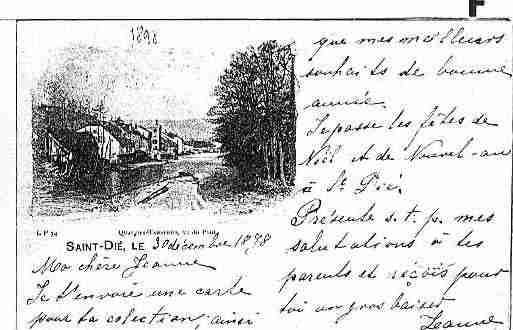 F
1898
L P 74
Quelques-Environs, vu du Pont
SAINT-DIÉ, LE 30 décembre 1898
Ma chère Jeanne
Je t'envoie une carte
pour ta colection, ainsi
que mes meilleurs
souhaits de bonne
année.
Je passe les fêtes de
Noël et de Nouvel-an
à St Dié
Présente s. t. p. mes
salutations à tes
parents et reçois pour
toi un gros baiser
Jeanne